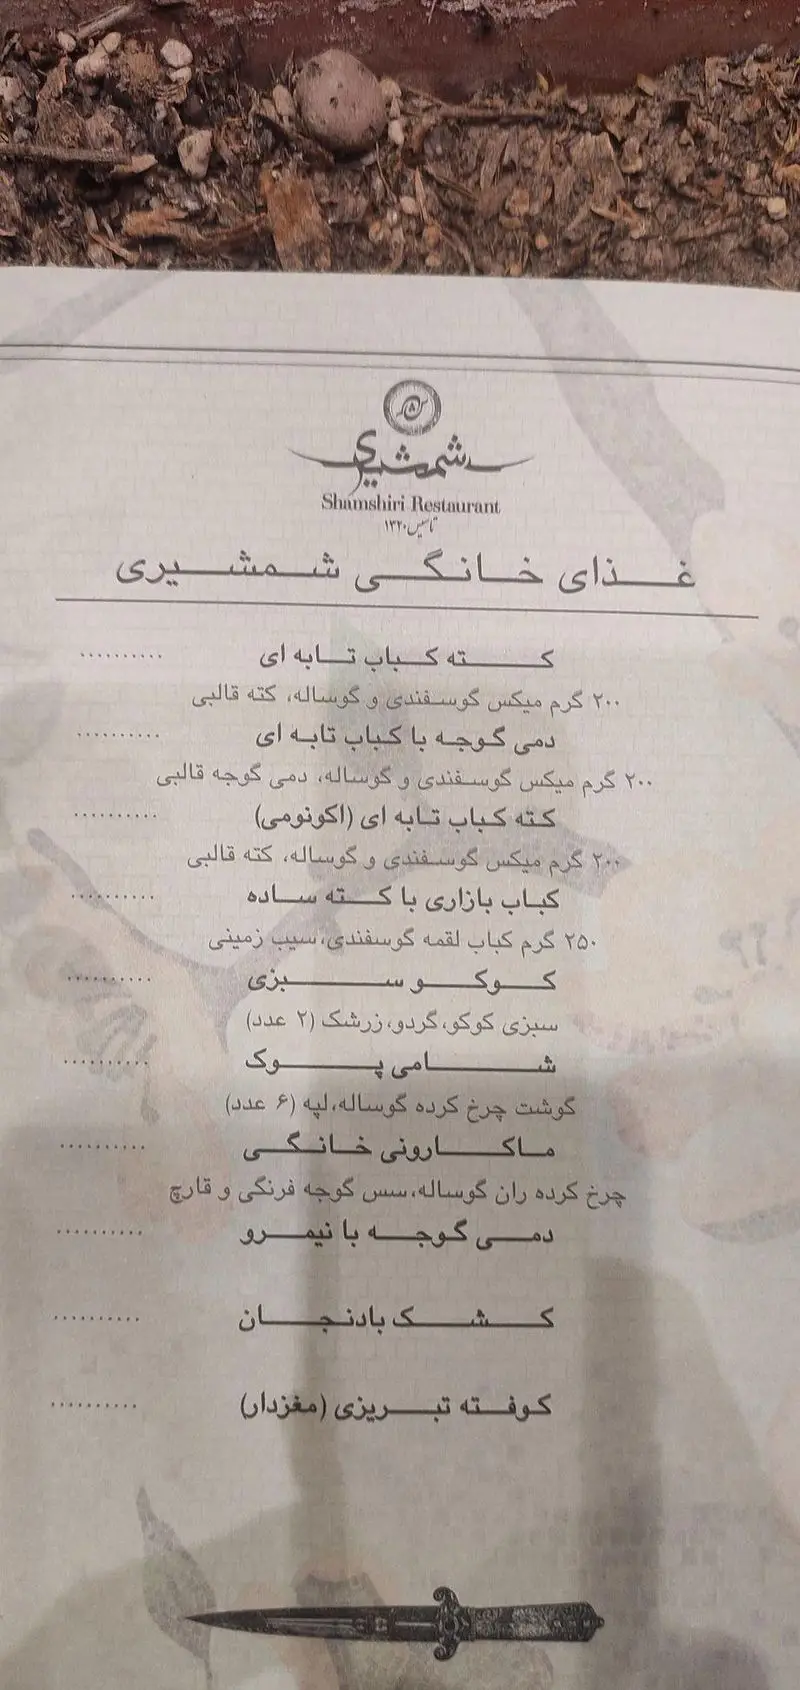 شمشیری
Shamshiri Restaurant
تاسیس ۱۳۲۰
غذای خانگی شمشیری
کته کباب تابه ای ..........
۲۰۰ گرم میکس گوسفندی و گوساله، کته قالبی
دمی گوجه با کباب تابه ای ..........
۲۰۰ گرم میکس گوسفندی و گوساله، دمی گوجه قالبی
کته کباب تابه ای (اکونومی) ..........
۲۰۰ گرم میکس گوسفندی و گوساله، کته قالبی
کباب بازاری با کته ساده ..........
۲۵۰ گرم کباب لقمه گوسفندی، سیب زمینی
کوکو سبزی ..........
سبزی کوکو، گردو، زرشک (۲ عدد)
شامی پوک ..........
گوشت چرخ کرده گوساله، لپه (۶ عدد)
ماکارونی خانگی ..........
چرخ کرده ران گوساله، سس گوجه فرنگی و قارچ
دمی گوجه با نیمرو ..........
کشک بادنجان ..........
کوفته تبریزی (مغزدار) ..........